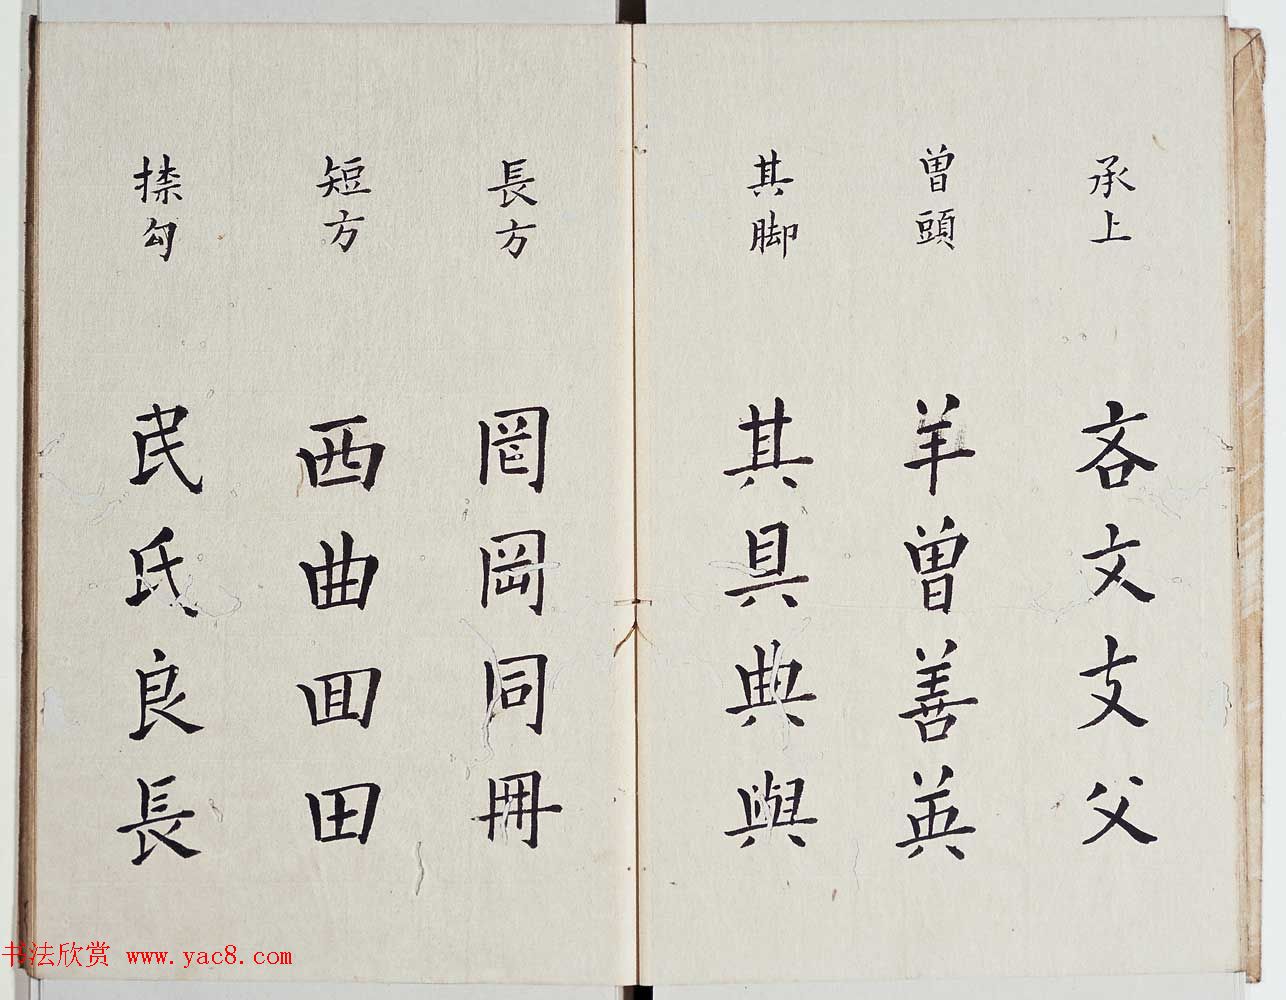 承上
吝文支父
曾頭
羊曾善英
其脚
其具典與
長方
罔岡同冊
短方
西曲囬田
勾
民氏良長
书法欣赏 www.yac8.com